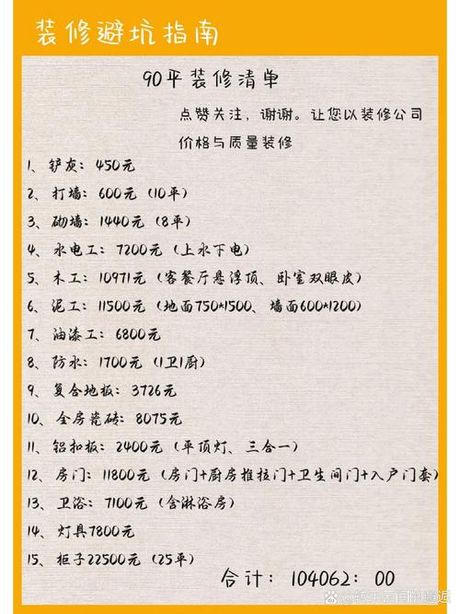 装修避坑指南
90平装修清单
点赞关注，谢谢。让您以装修公司
价格与质量装修
1、铲灰：450元
2、打墙：600元（10平）
3、砌墙：1440元（8平）
4、水电工：7200元（上水下电）
5、木工：10971元（客餐厅悬浮顶、卧室双眼皮）
6、泥工：11500元（地面750*1500、墙面600*1200）
7、油漆工：6800元
8、防水：1700元（1卫1厨）
9、复合地板：3726元
10、全房瓷砖：8075元
11、铝扣板：2400元（平顶灯、三合一）
12、房门：11800元（房门+厨房推拉门+卫生间门+入户门套）
13、卫浴：7100元（含淋浴房）
14、灯具7800元
15、柜子22500元（25平）
合计：104062：00